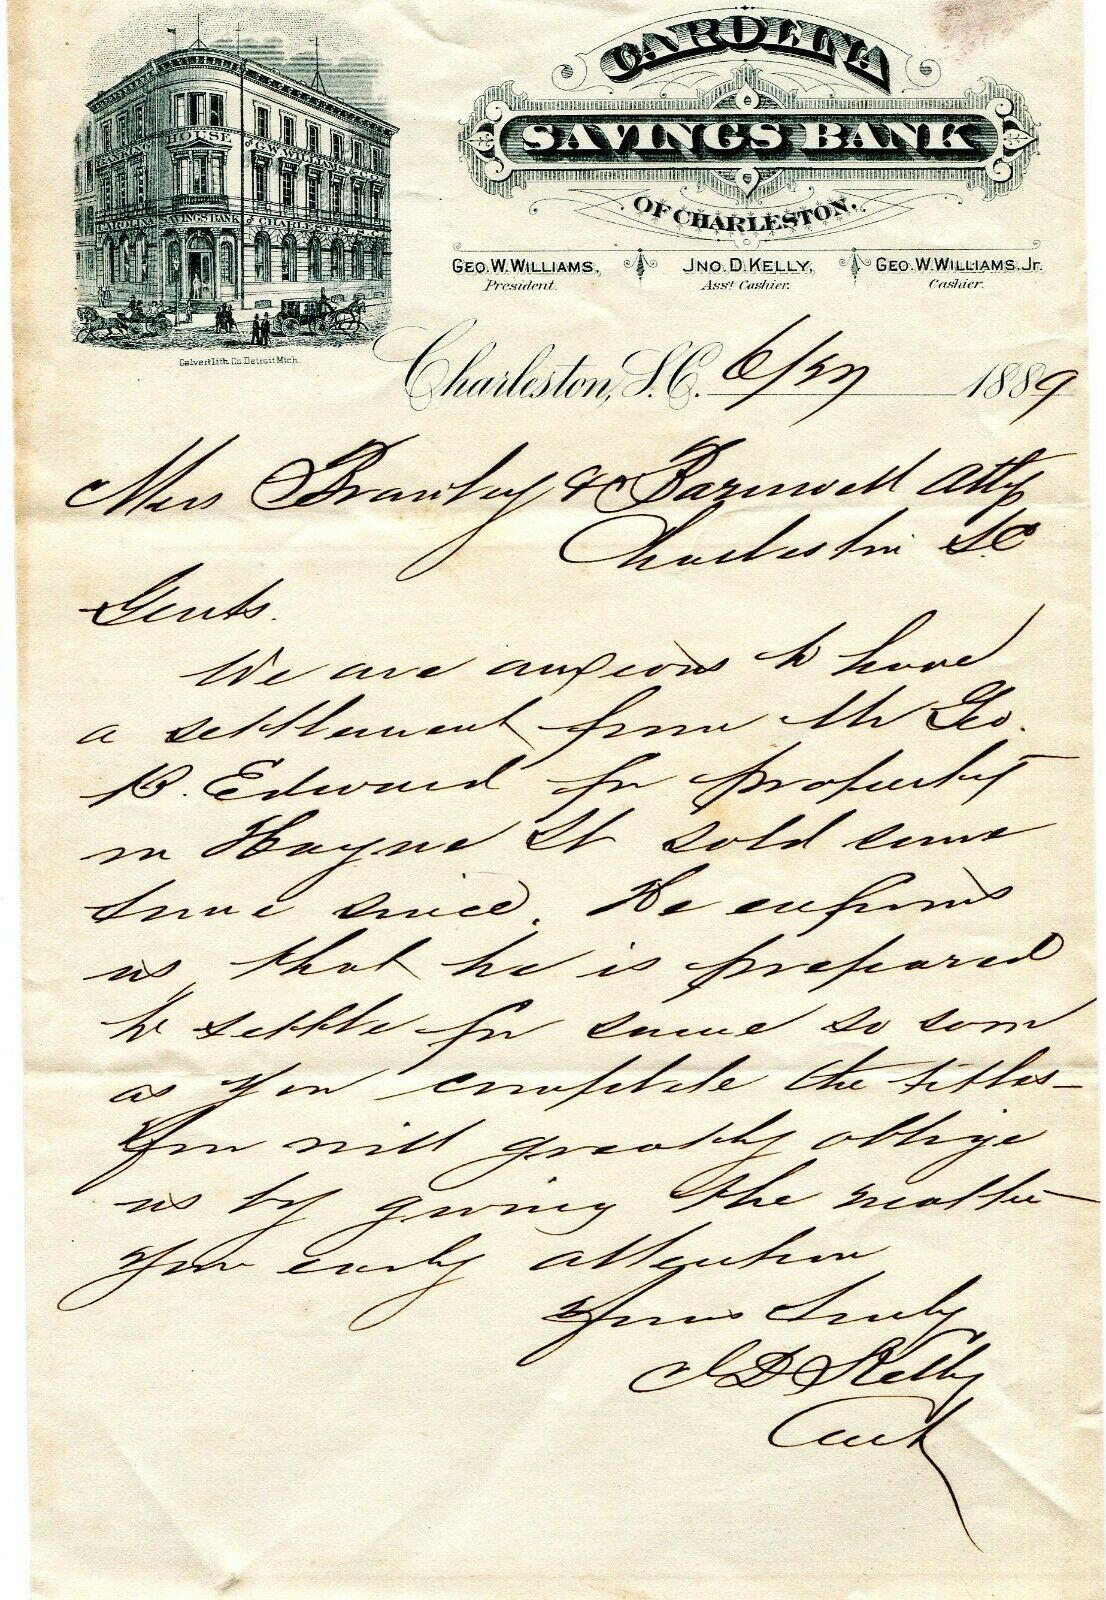 BANKING HOUSE OF G.W. WILLIAMS
CAROLINA SAVINGS BANK OF CHARLESTON S.C.
Calvert Lith. Co. Detroit Mich.
CAROLINA
SAVINGS BANK
OF CHARLESTON.
GEO. W. WILLIAMS, JNO. D. KELLY, GEO. W. WILLIAMS. Jr.
President. Asst. Cashier. Cashier.
Charleston, S.C. 6/27 1889
Mess Brawley & Barnwell Attys
Charleston S.C
Gents.
We are anxious to have
a settlement from Mr Geo.
B. Edward for property
on Hayne St sold some
time since. He informs
us, that he is prepared
to settle for same so soon
as you complete the titles-
You will greatly oblige
us by giving the matter
your early attention
Yours Truly
J D Kelly